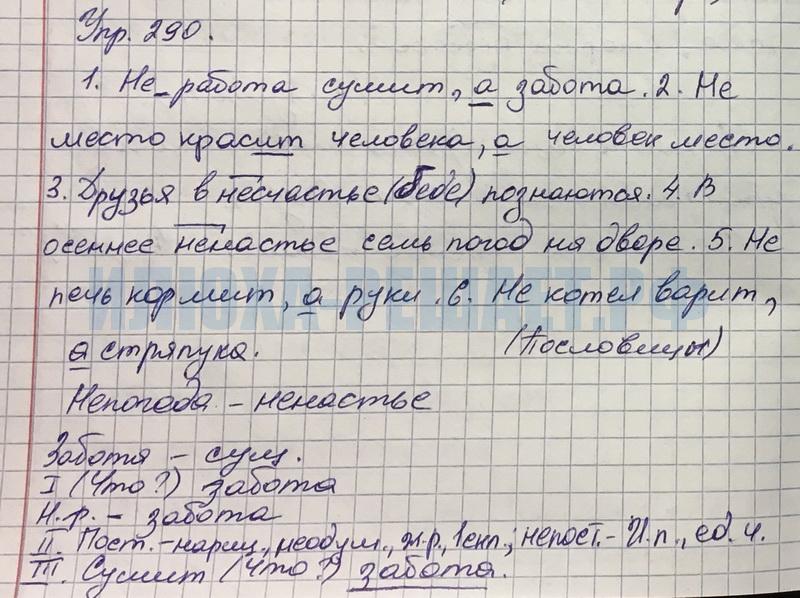 Упр. 290.
1. Не работа сушит, а забота. 2. Не
место красит человека, а человек место.
3. Друзья в несчастье (беде) познаются. 4. В
осеннее ненастье семь погод на дворе. 5. Не
ИЛЮХА-РЕШАЕТ.РФ
печь кормит, а руки. 6. Не котел варит,
а стряпуха. (Пословицы)
Непогода - ненастье
Забота - сущ.
I (Что?) забота
Н.ф. - забота
II. Пост. - нариц., неодуш., ж.р., 1 скл.; непост. - И.п., ед. ч.
III. Сушит (что?) забота.